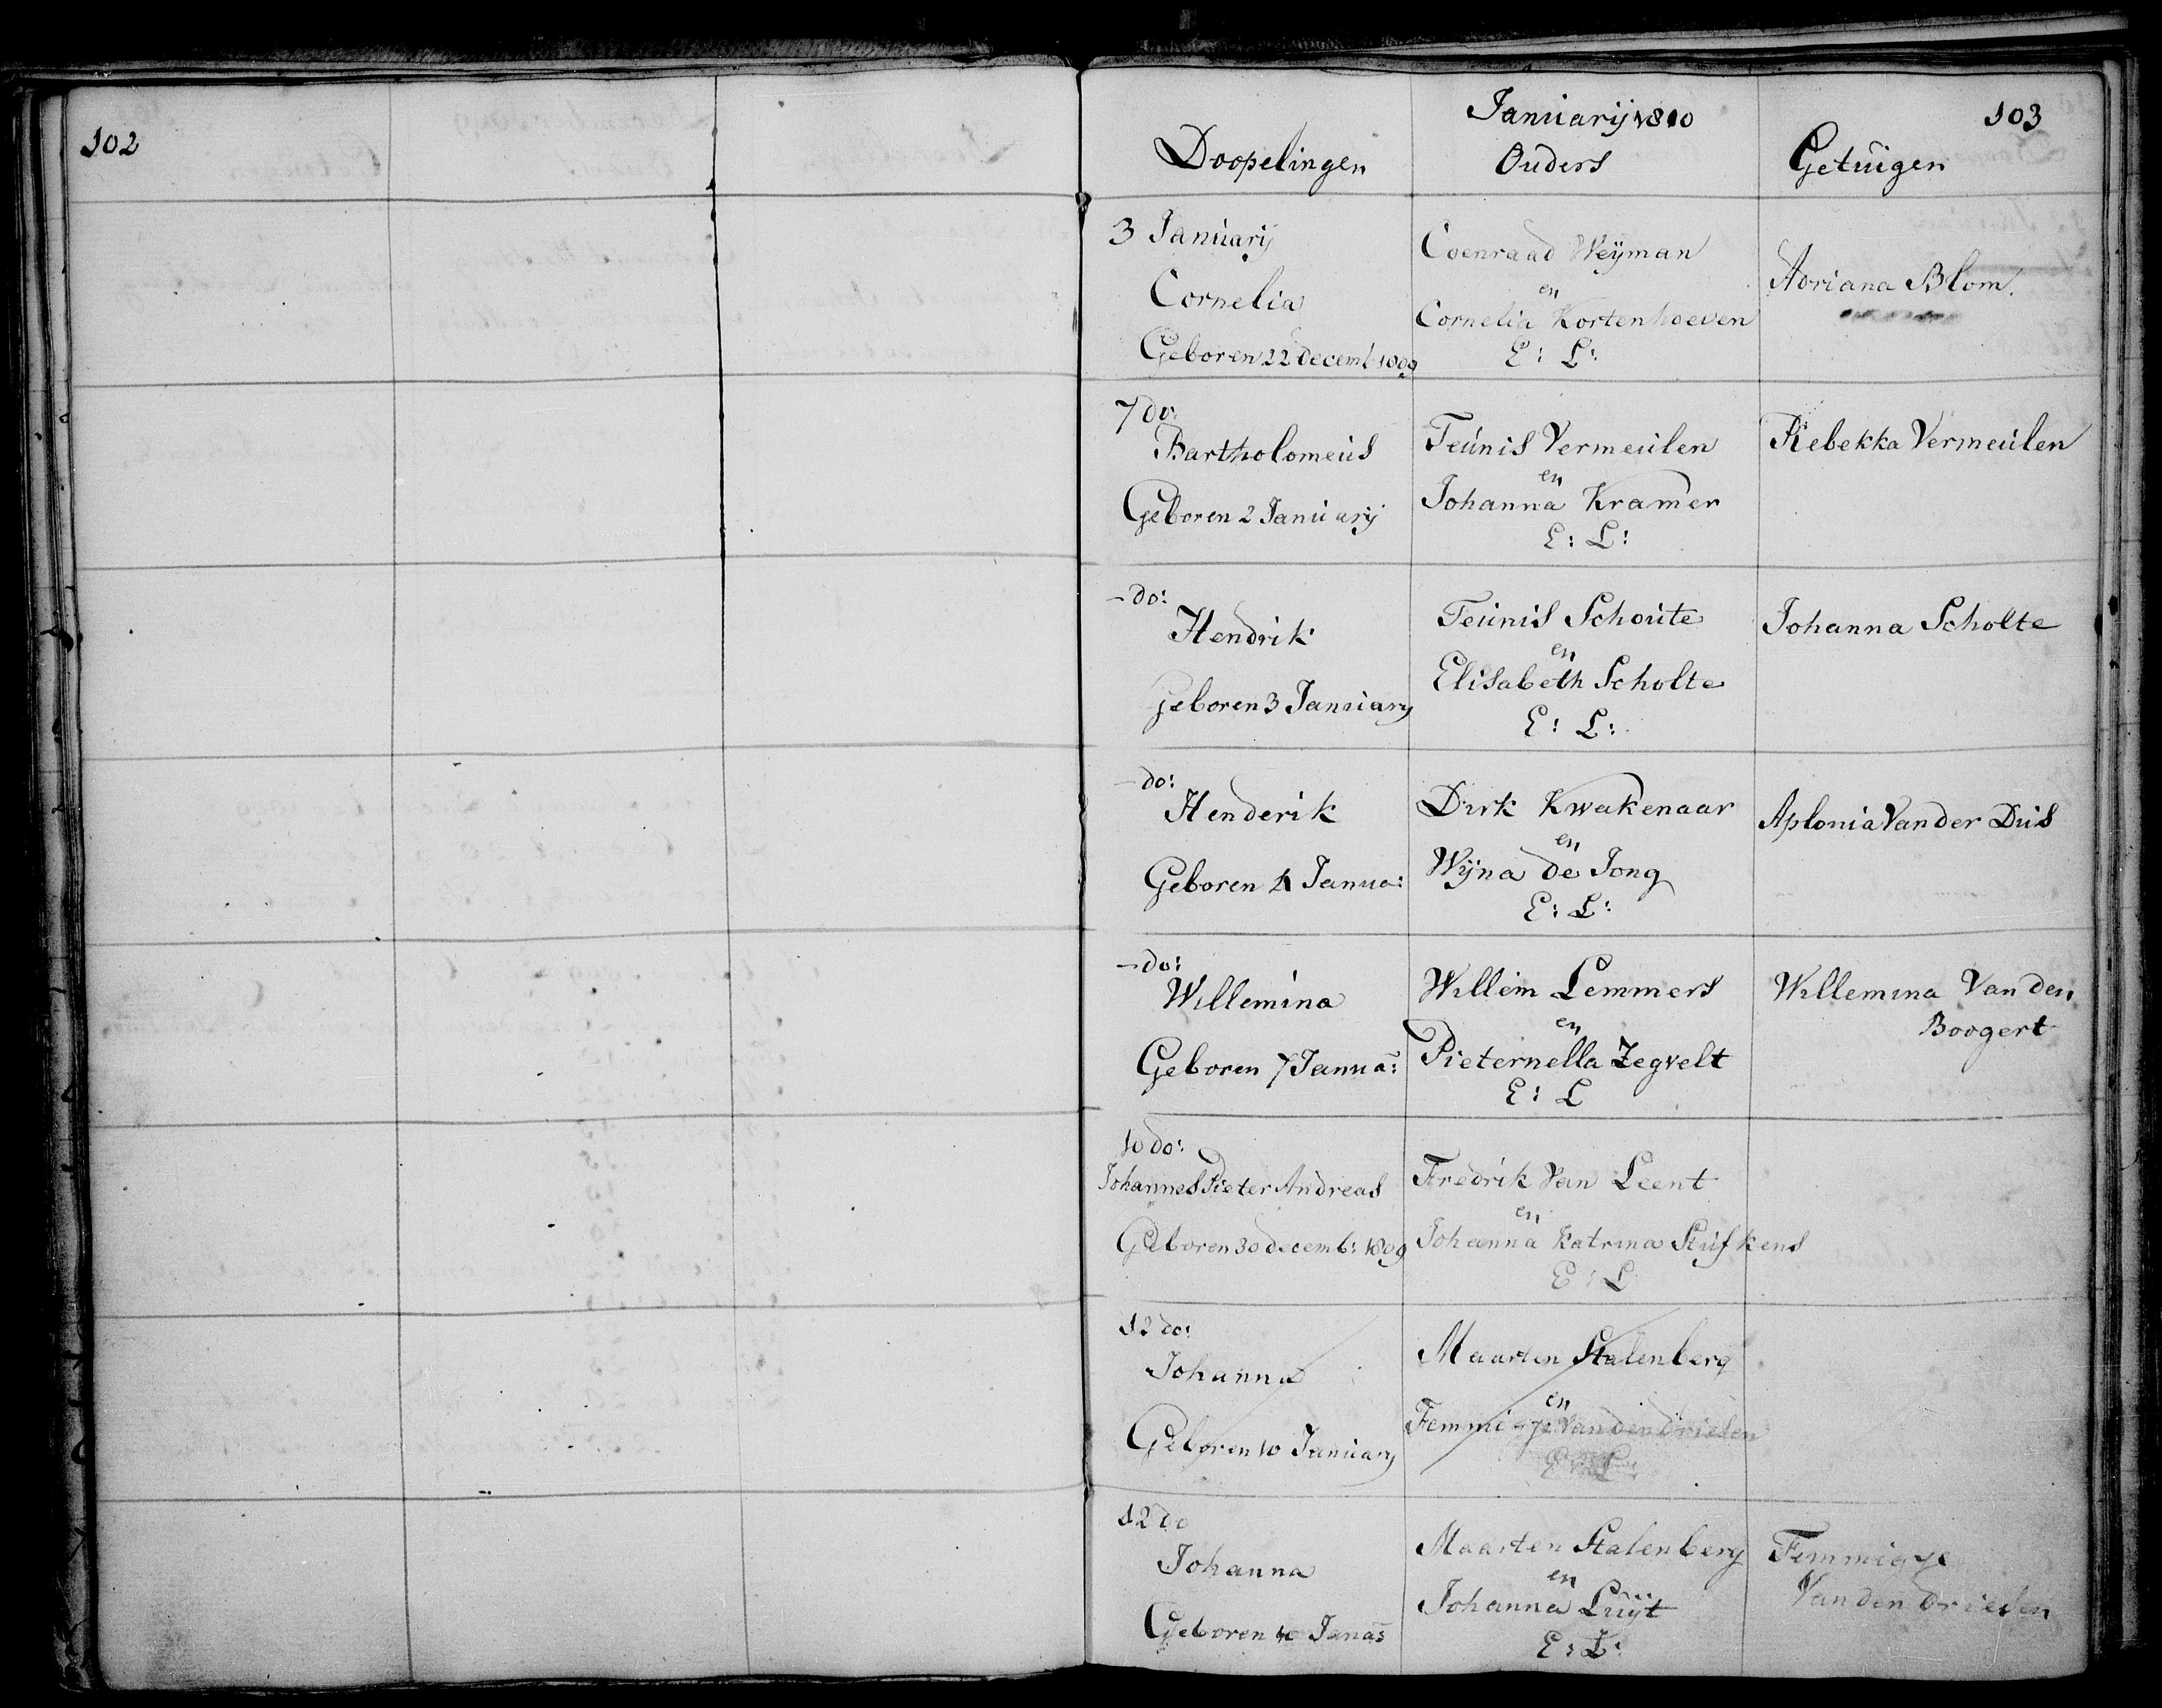 102
Januarij 1810
103
Doopelingen
Ouders
Getuigen
3 Januarij
Cornelia
Geboren 22 decemb 1809
Coenraad Weÿman
en
Cornelia Kortenhoeven
E: L:
Adriana Blom.
7 do:
Bartholomeus
Geboren 2 Januarij
Teunis Vermeulen
en
Johanna Kramer
E: L:
Rebekka Vermeulen
- do:
Hendrik
Geboren 3 January
Teunis Schoute
en
Elisabeth Scholte
E: L:
Johanna Scholte
- do:
Henderik
Geboren 4 Janua:
Dirk Kwakenaar
en
Wijna de Jong
E: L:
Aplonia Van der Dus
- do:
Willemina
Geboren 7 Janua:
Willem Lemmers
en
Pieternella Zegvelt
E: L
Willemina Van den
Boogert
10 do:
Johannes Pieter Andreas
Geboren 30 decemb: 1809
Fredrik Van Leent
en
Johanna Katrina Stufkens
E: L
12 do:
Johanna
Geboren 10 January
Maarten Stalenberg
en
Femmigje Van den Driesen
E: L:
12 do
Johanna
Geboren 10 Jana:
Maarten Stalenberg
en
Johanna Luijt
E: L:
Femmigje
Van den Driesen